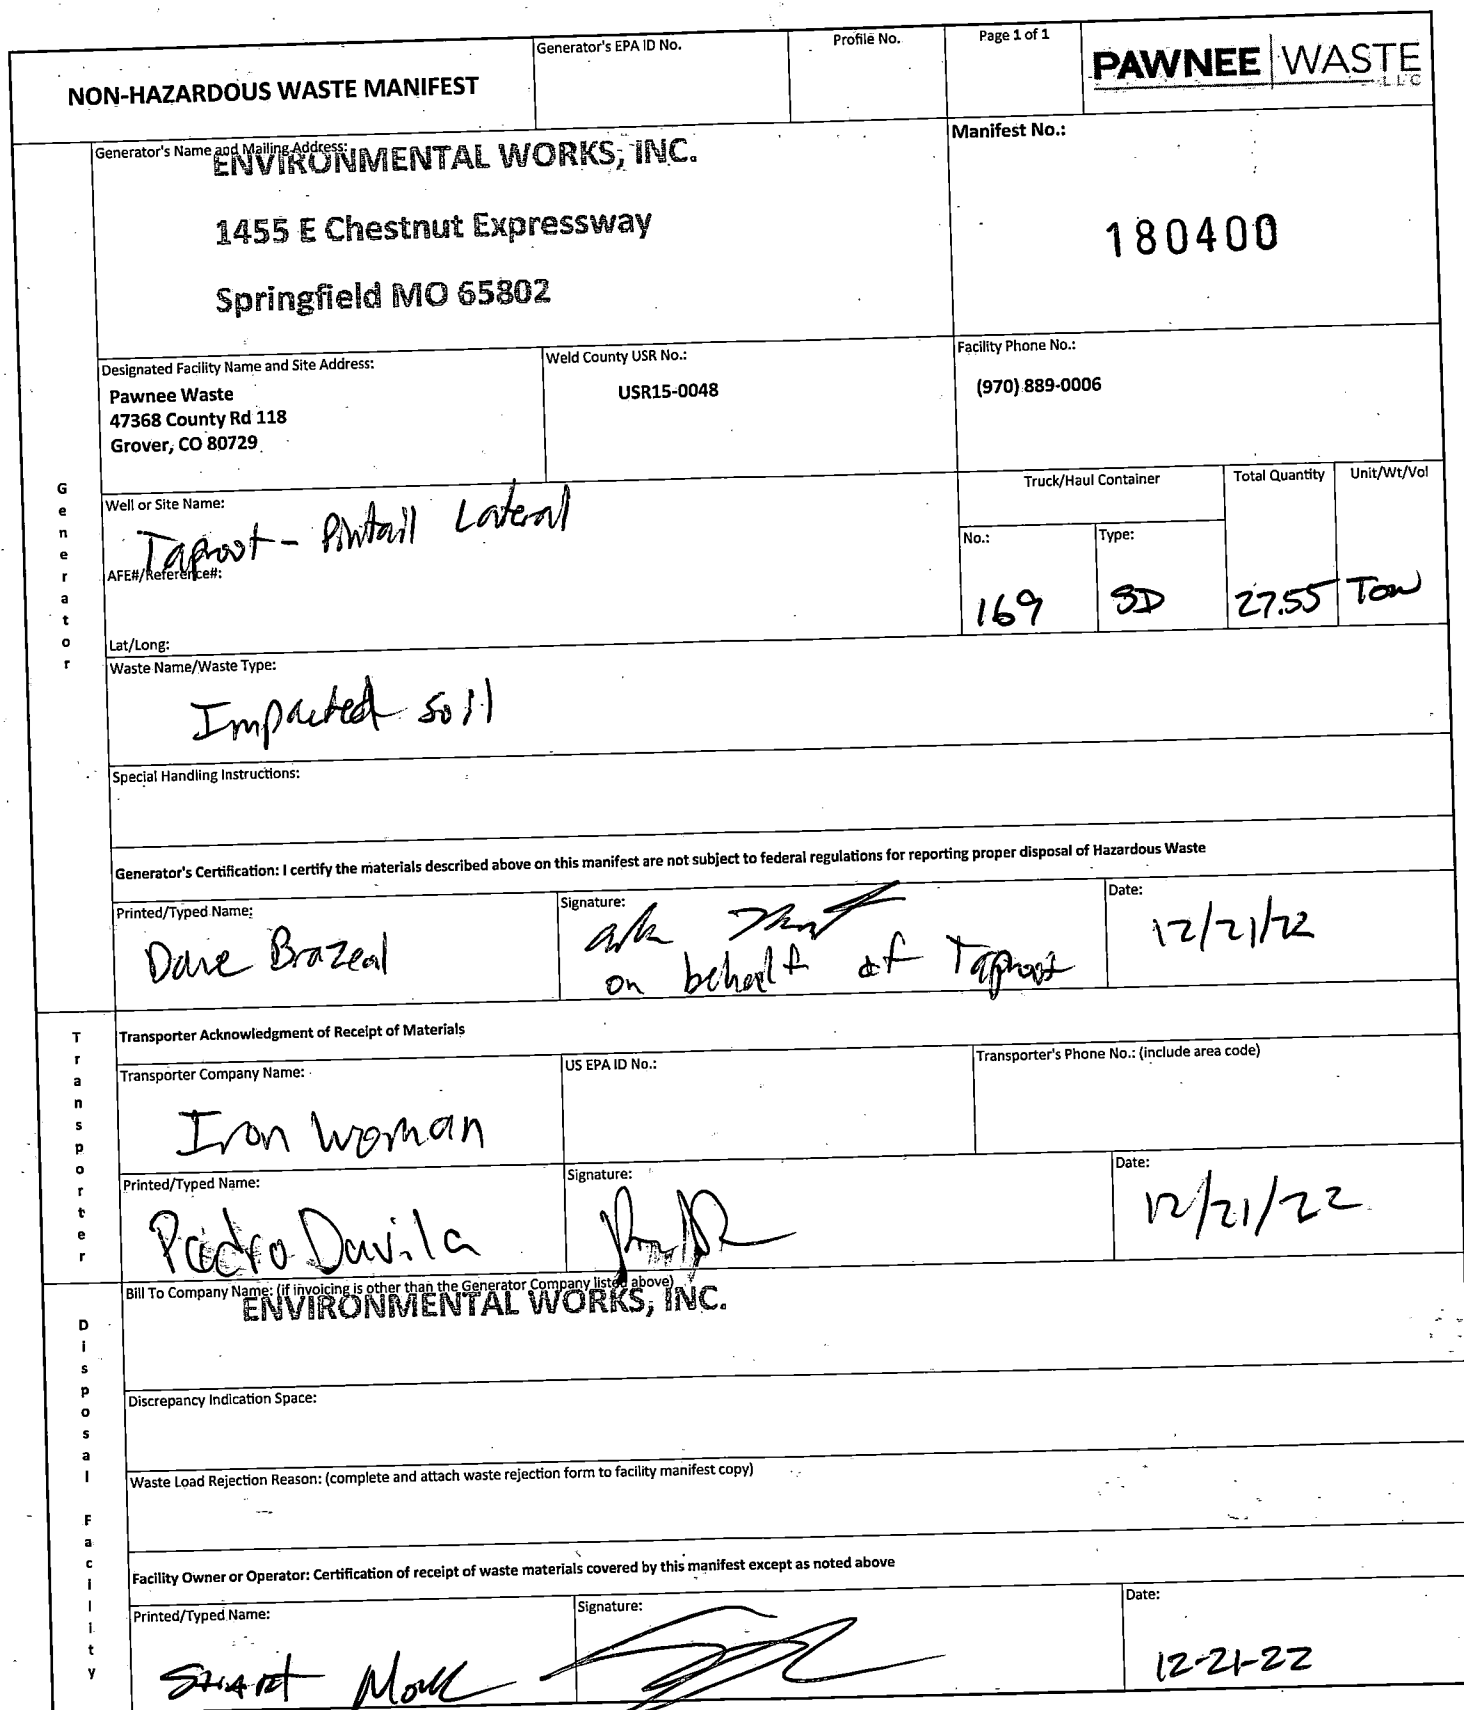 NON-HAZARDOUS WASTE MANIFEST
Generator's EPA ID No.
Profile No.
Page 1 of 1
PAWNEE WASTE
LLC
Generator's Name and Mailing Address:
ENVIRONMENTAL WORKS, INC.
1455 E Chestnut Expressway
Springfield MO 65802
Manifest No.:
180400
Designated Facility Name and Site Address:
Pawnee Waste
47368 County Rd 118
Grover, CO 80729
Weld County USR No.:
USR15-0048
Facility Phone No.:
(970) 889-0006
Generator
Well or Site Name:
Taproot - Pintail Lateral
AFE#/Reference#:
Lat/Long:
Truck/Haul Container
No.:
169
Type:
SD
Total Quantity
27.55
Unit/Wt/Vol
Ton
Waste Name/Waste Type:
Impacted soil
Special Handling Instructions:
Generator's Certification: I certify the materials described above on this manifest are not subject to federal regulations for reporting proper disposal of Hazardous Waste
Printed/Typed Name:
Dave Brazeal
Signature:
on behalf of Taproot
Date:
12/21/22
Transporter
Transporter Acknowledgment of Receipt of Materials
Transporter Company Name:
Iron Woman
US EPA ID No.:
Transporter's Phone No.: (include area code)
Printed/Typed Name:
Pedro Davila
Signature:
Date:
12/21/22
Disposal Facility
Bill To Company Name: (if invoicing is other than the Generator Company listed above)
ENVIRONMENTAL WORKS, INC.
Discrepancy Indication Space:
Waste Load Rejection Reason: (complete and attach waste rejection form to facility manifest copy)
Facility Owner or Operator: Certification of receipt of waste materials covered by this manifest except as noted above
Printed/Typed Name:
Stuart
Signature:
Date:
12-21-22